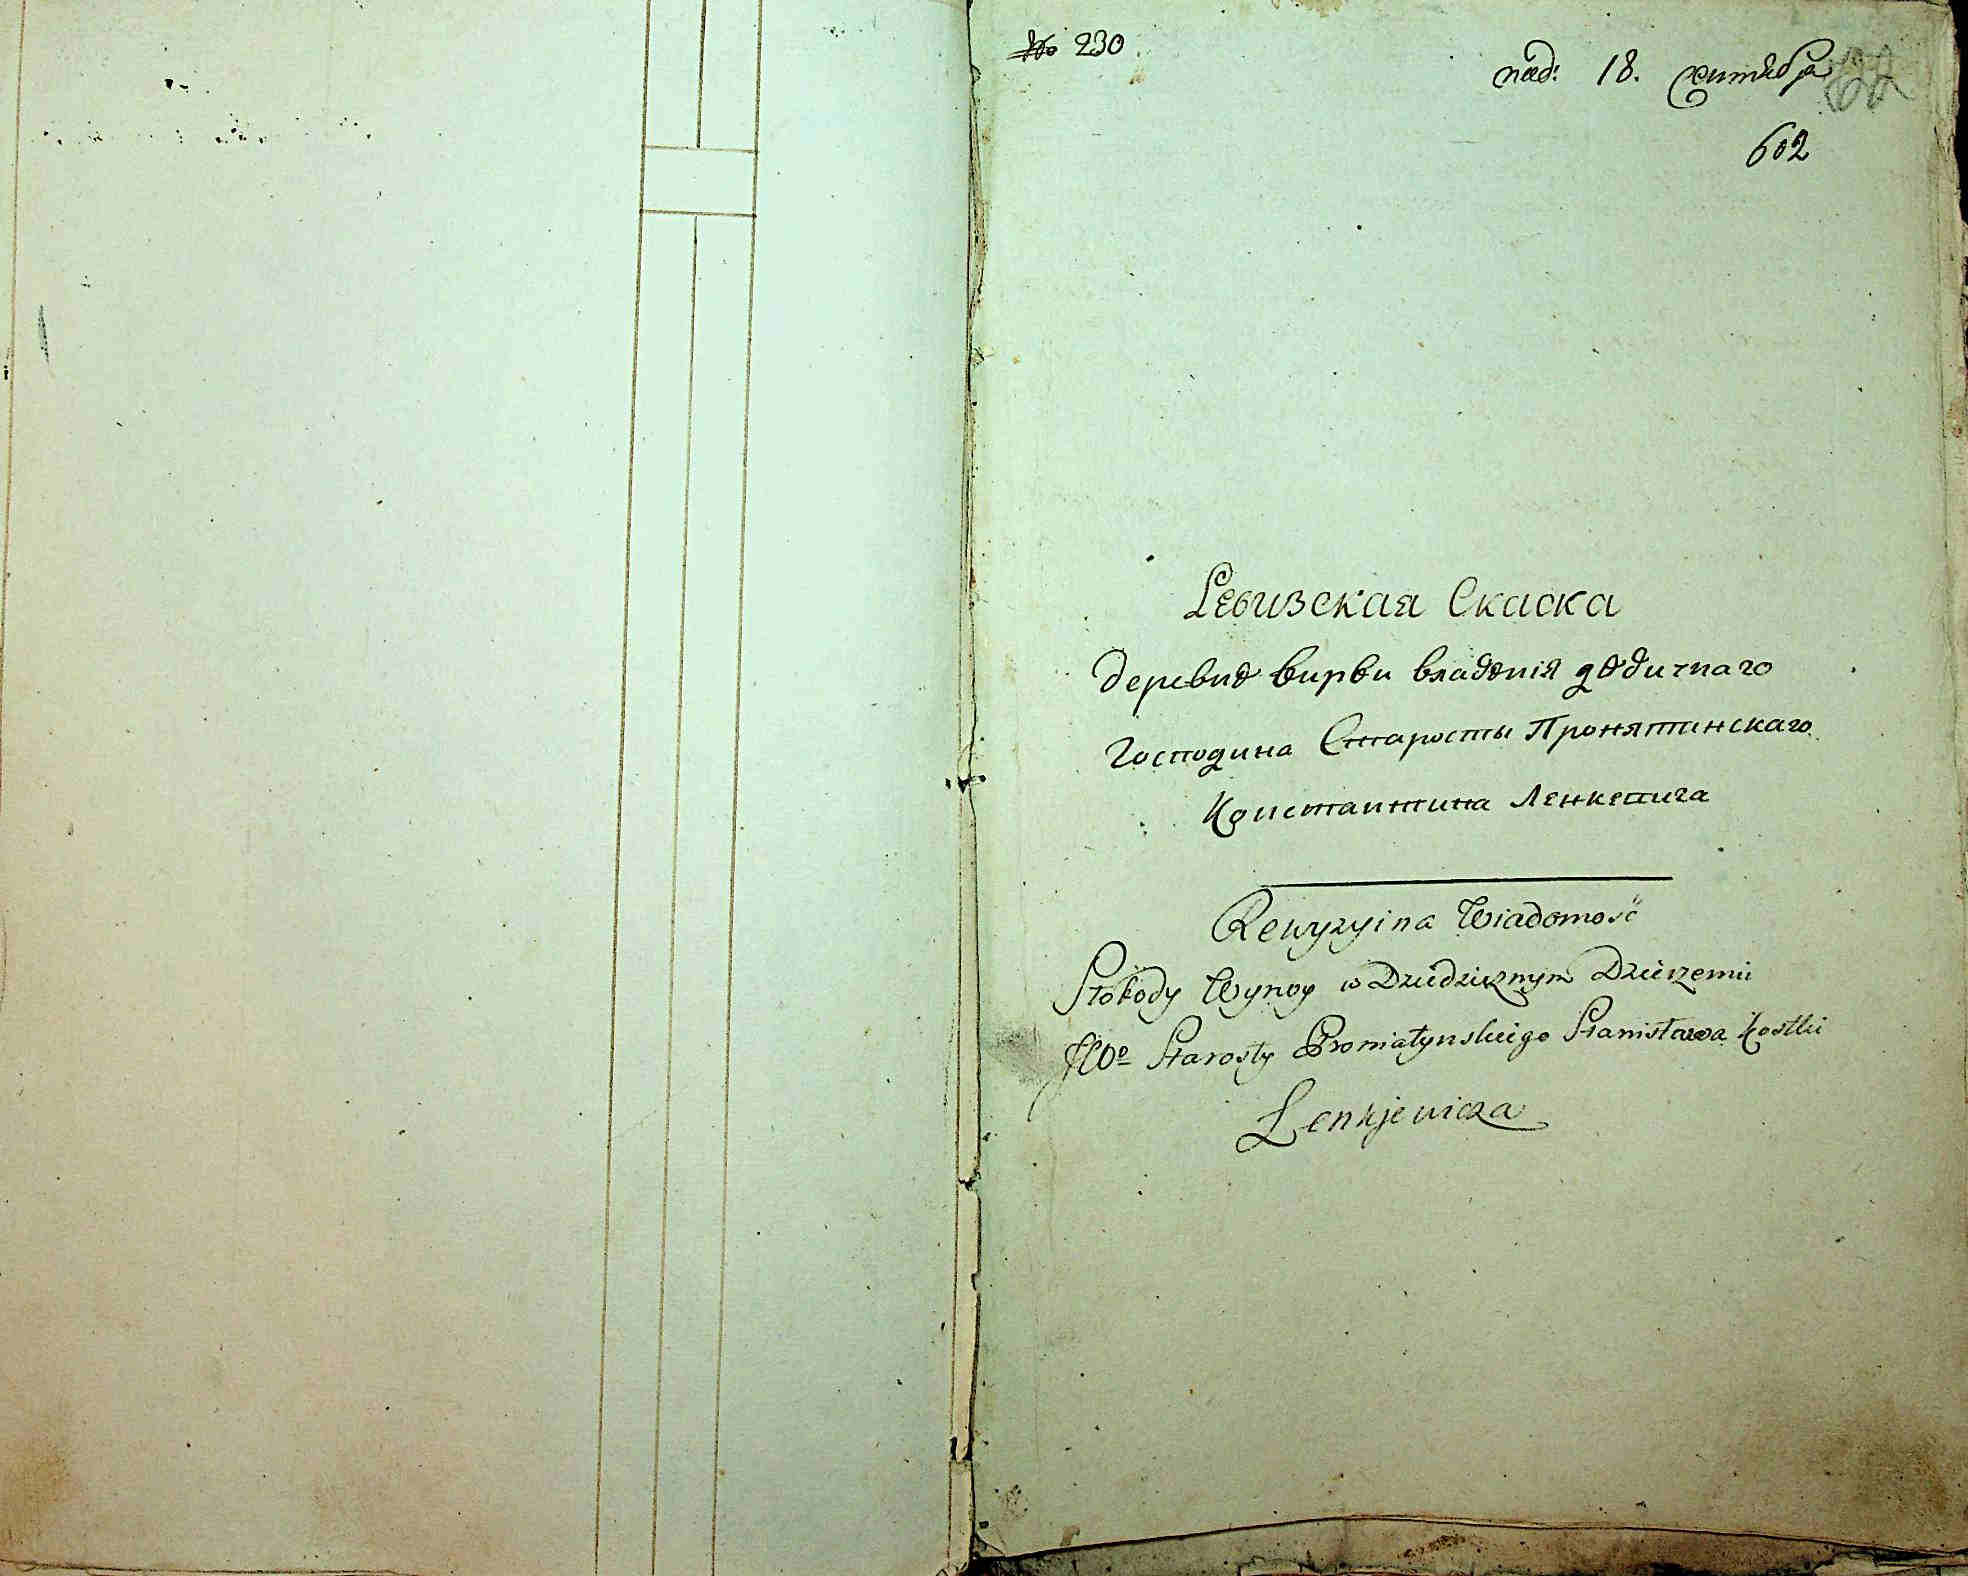 № 230
под: 18. сентября
602
Ревизская Скаска
деревне Вирви владения дедичнаго
Господина Старосты Пронятинскаго
Константина Ленкевича
Rewyzyina Wiadomość
Słobody Wyrvy w Dziedzicznym Dzierzeniu
JWo Starosty Proniatynskiego Stanisława Kostki
Lenkjewicza